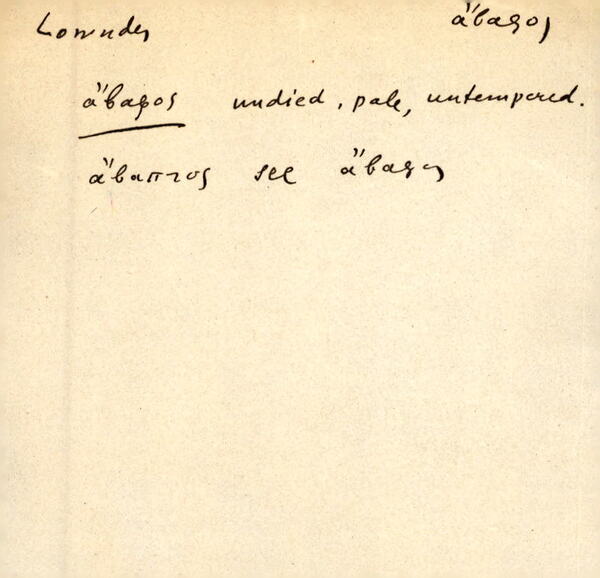 Lowndes ἄβαφος
ἄβαφος undied, pale, untempered.
ἄβαπτος see ἄβαφος